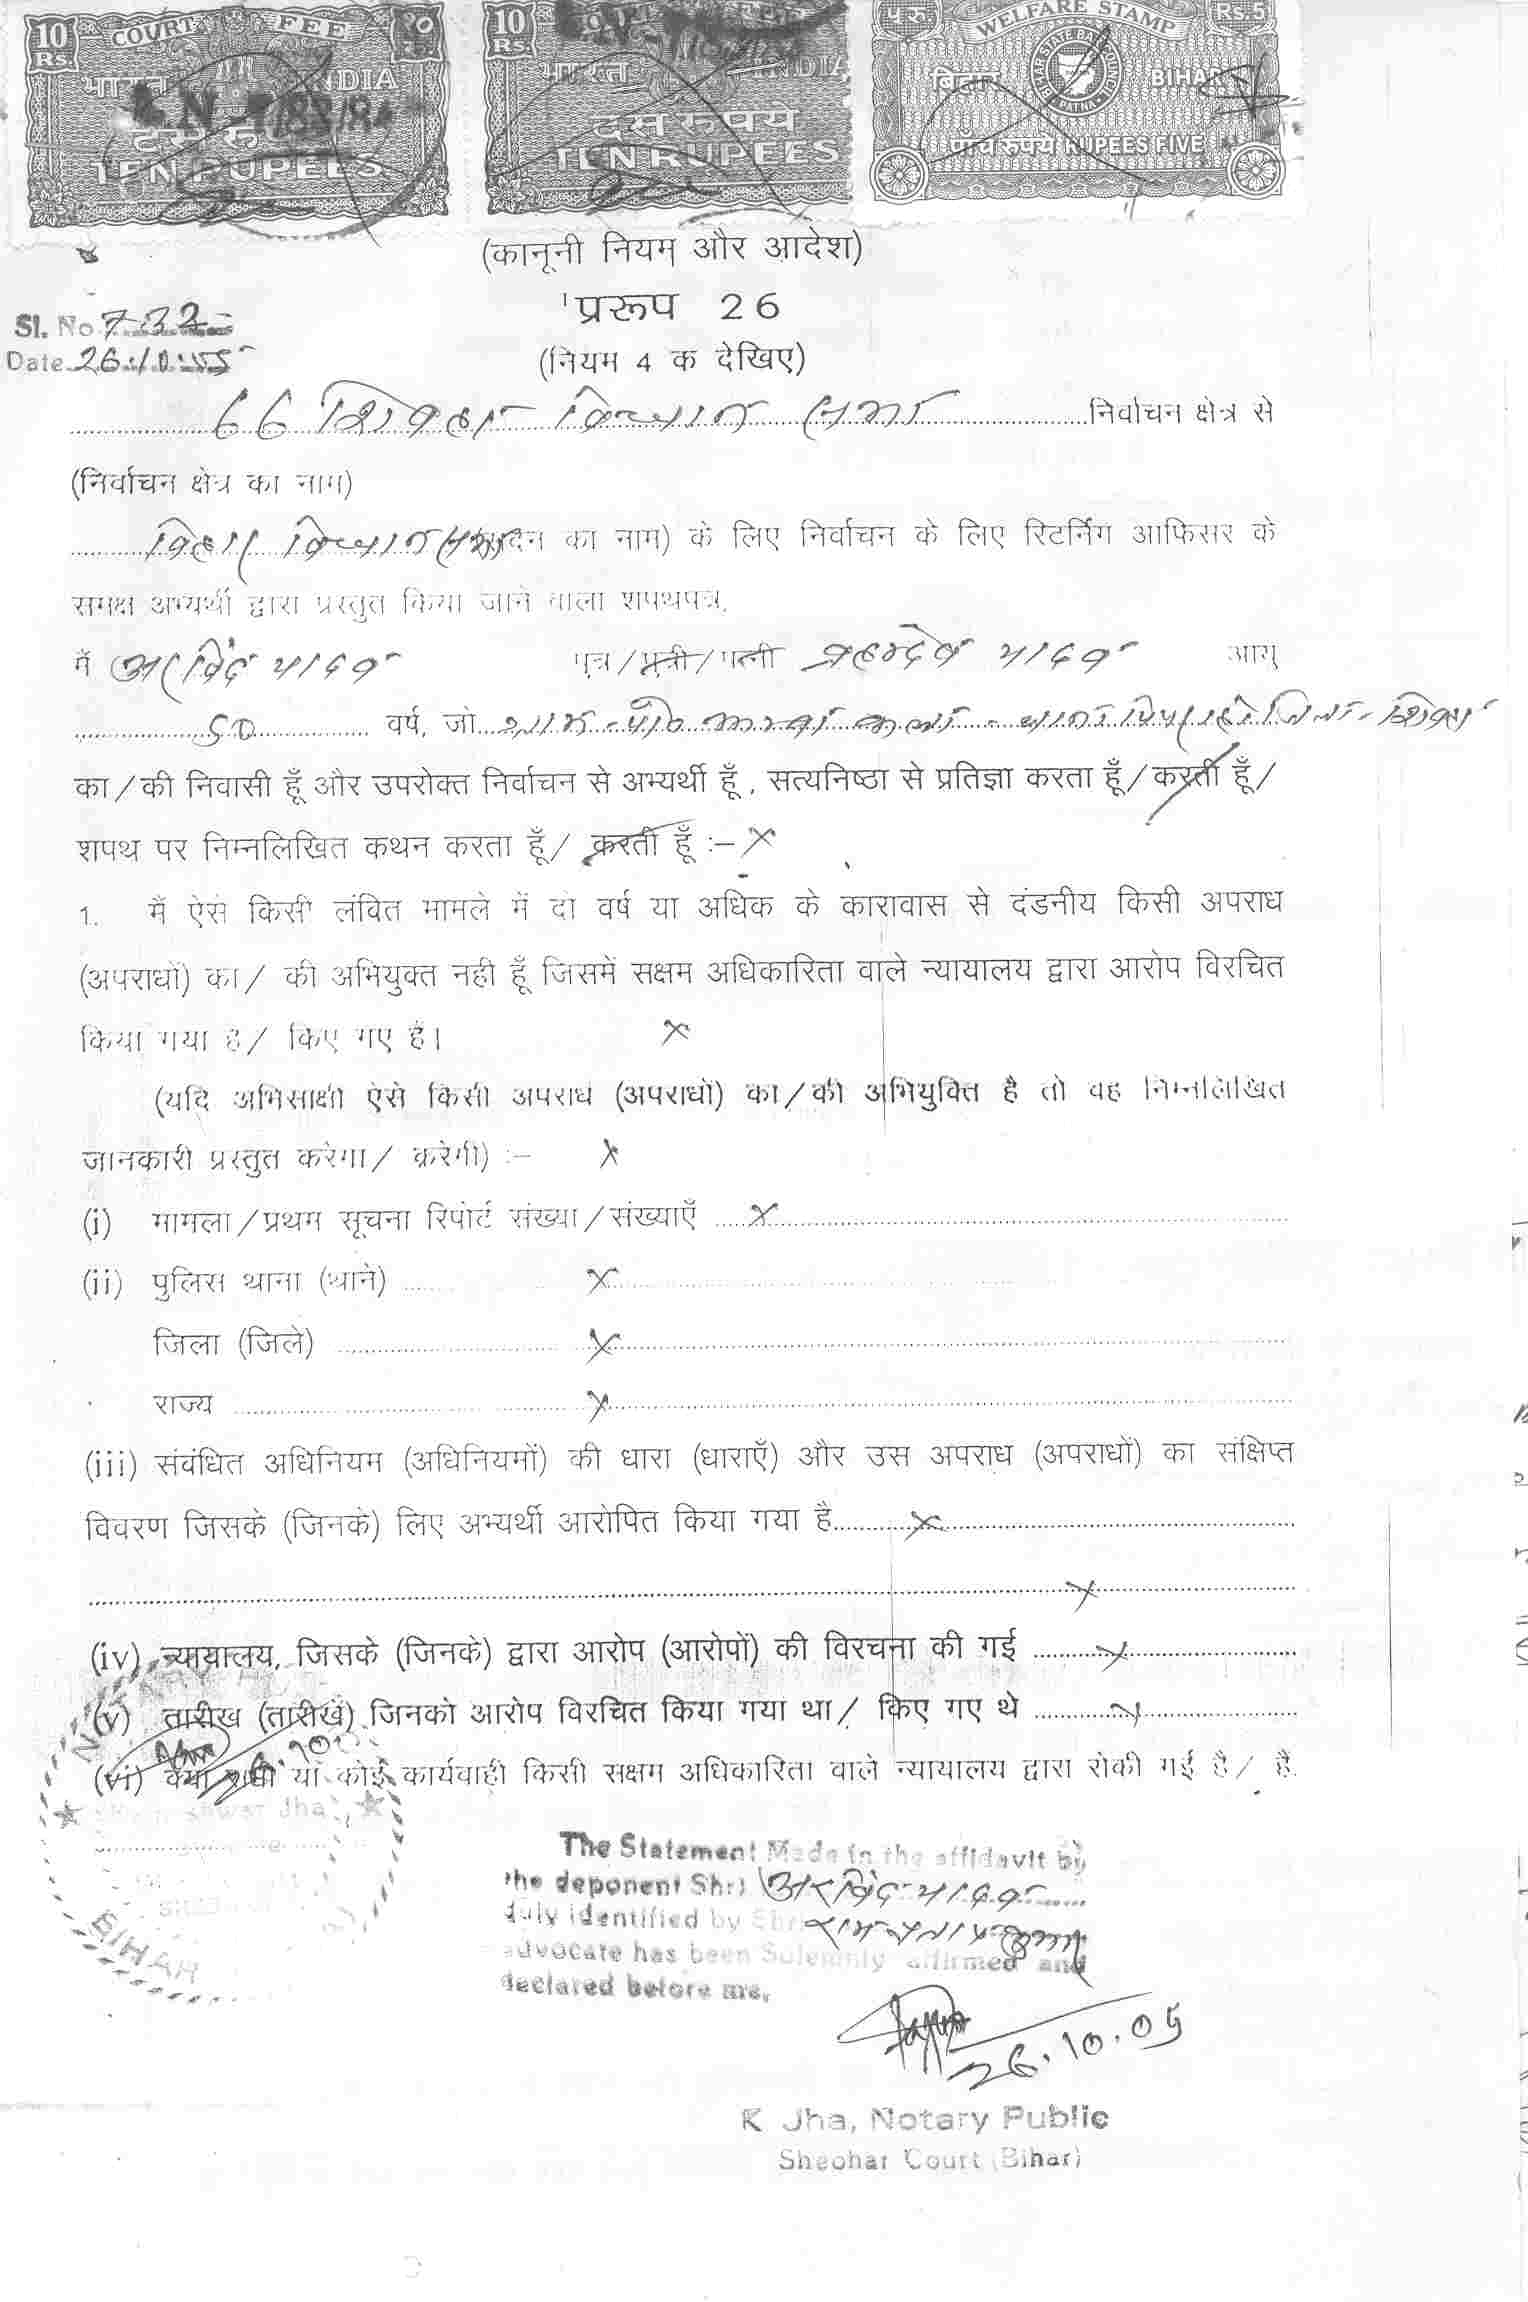 10 COURT FEE १०
Rs. भारत INDIA
दस रु
TEN RUPEES
10
Rs. भारत INDIA
दस रुपये
TEN RUPEES
WELFARE STAMP Rs.5
BIHAR STATE BAR COUNCIL PATNA
BIHAR
पाँच रुपये RUPEES FIVE
(कानूनी नियम और आदेश)
प्ररूप 26
(नियम 4 क देखिए)
Sl. No 732
Date 26.10.05
66 शिवहर विधान सभा निर्वाचन क्षेत्र से
(निर्वाचन क्षेत्र का नाम)
बिहार विधान सभा (सदन का नाम) के लिए निर्वाचन के लिए रिटर्निंग आफिसर के
समक्ष अभ्यर्थी द्वारा प्रस्तुत किया जाने वाला शपथपत्र,
मैं अरविंद यादव पुत्र/पुत्री/पत्नी यादव आयु
50 वर्ष, जो ग्राम - थाना जिला - शिवहर
का/की निवासी हूँ और उपरोक्त निर्वाचन से अभ्यर्थी हूँ, सत्यनिष्ठा से प्रतिज्ञा करता हूँ/करती हूँ/
शपथ पर निम्नलिखित कथन करता हूँ/ करती हूँ :– ×
1. मैं ऐसे किसी लंवित मामले में दो वर्ष या अधिक के कारावास से दंडनीय किसी अपराध
(अपराधों) का/ की अभियुक्त नही हूँ जिसमें सक्षम अधिकारिता वाले न्यायालय द्वारा आरोप विरचित
किया गया है/ किए गए है। ×
(यदि अभिसाक्षी ऐसे किसी अपराध (अपराधों) का/की अभियुक्ति है तो वह निम्नलिखित
जानकारी प्रस्तुत करेगा/ करेगी) :– ×
(i) मामला/प्रथम सूचना रिपोर्ट संख्या/संख्याएँ ×
(ii) पुलिस थाना (थाने) ×
जिला (जिले) ×
राज्य ×
(iii) संबंधित अधिनियम (अधिनियमों) की धारा (धाराएँ) और उस अपराध (अपराधों) का संक्षिप्त
विवरण जिसके (जिनके) लिए अभ्यर्थी आरोपित किया गया है ×
×
(iv) न्यायालय, जिसके (जिनके) द्वारा आरोप (आरोपों) की विरचना की गई ×
(v) तारीख (तारीखें) जिनको आरोप विरचित किया गया था/ किए गए थे ×
(vi) क्या सभी या कोई कार्यवाही किसी सक्षम अधिकारिता वाले न्यायालय द्वारा रोकी गई है/ हैं.
Jha
BIHAR
The Statement Made in the affidavit by
the deponent Shri अरविंद यादव
duly identified by Shri
advocate has been Solemnly affirmed and
declared before me.
26.10.05
K Jha, Notary Public
Sheohar Court (Bihar)